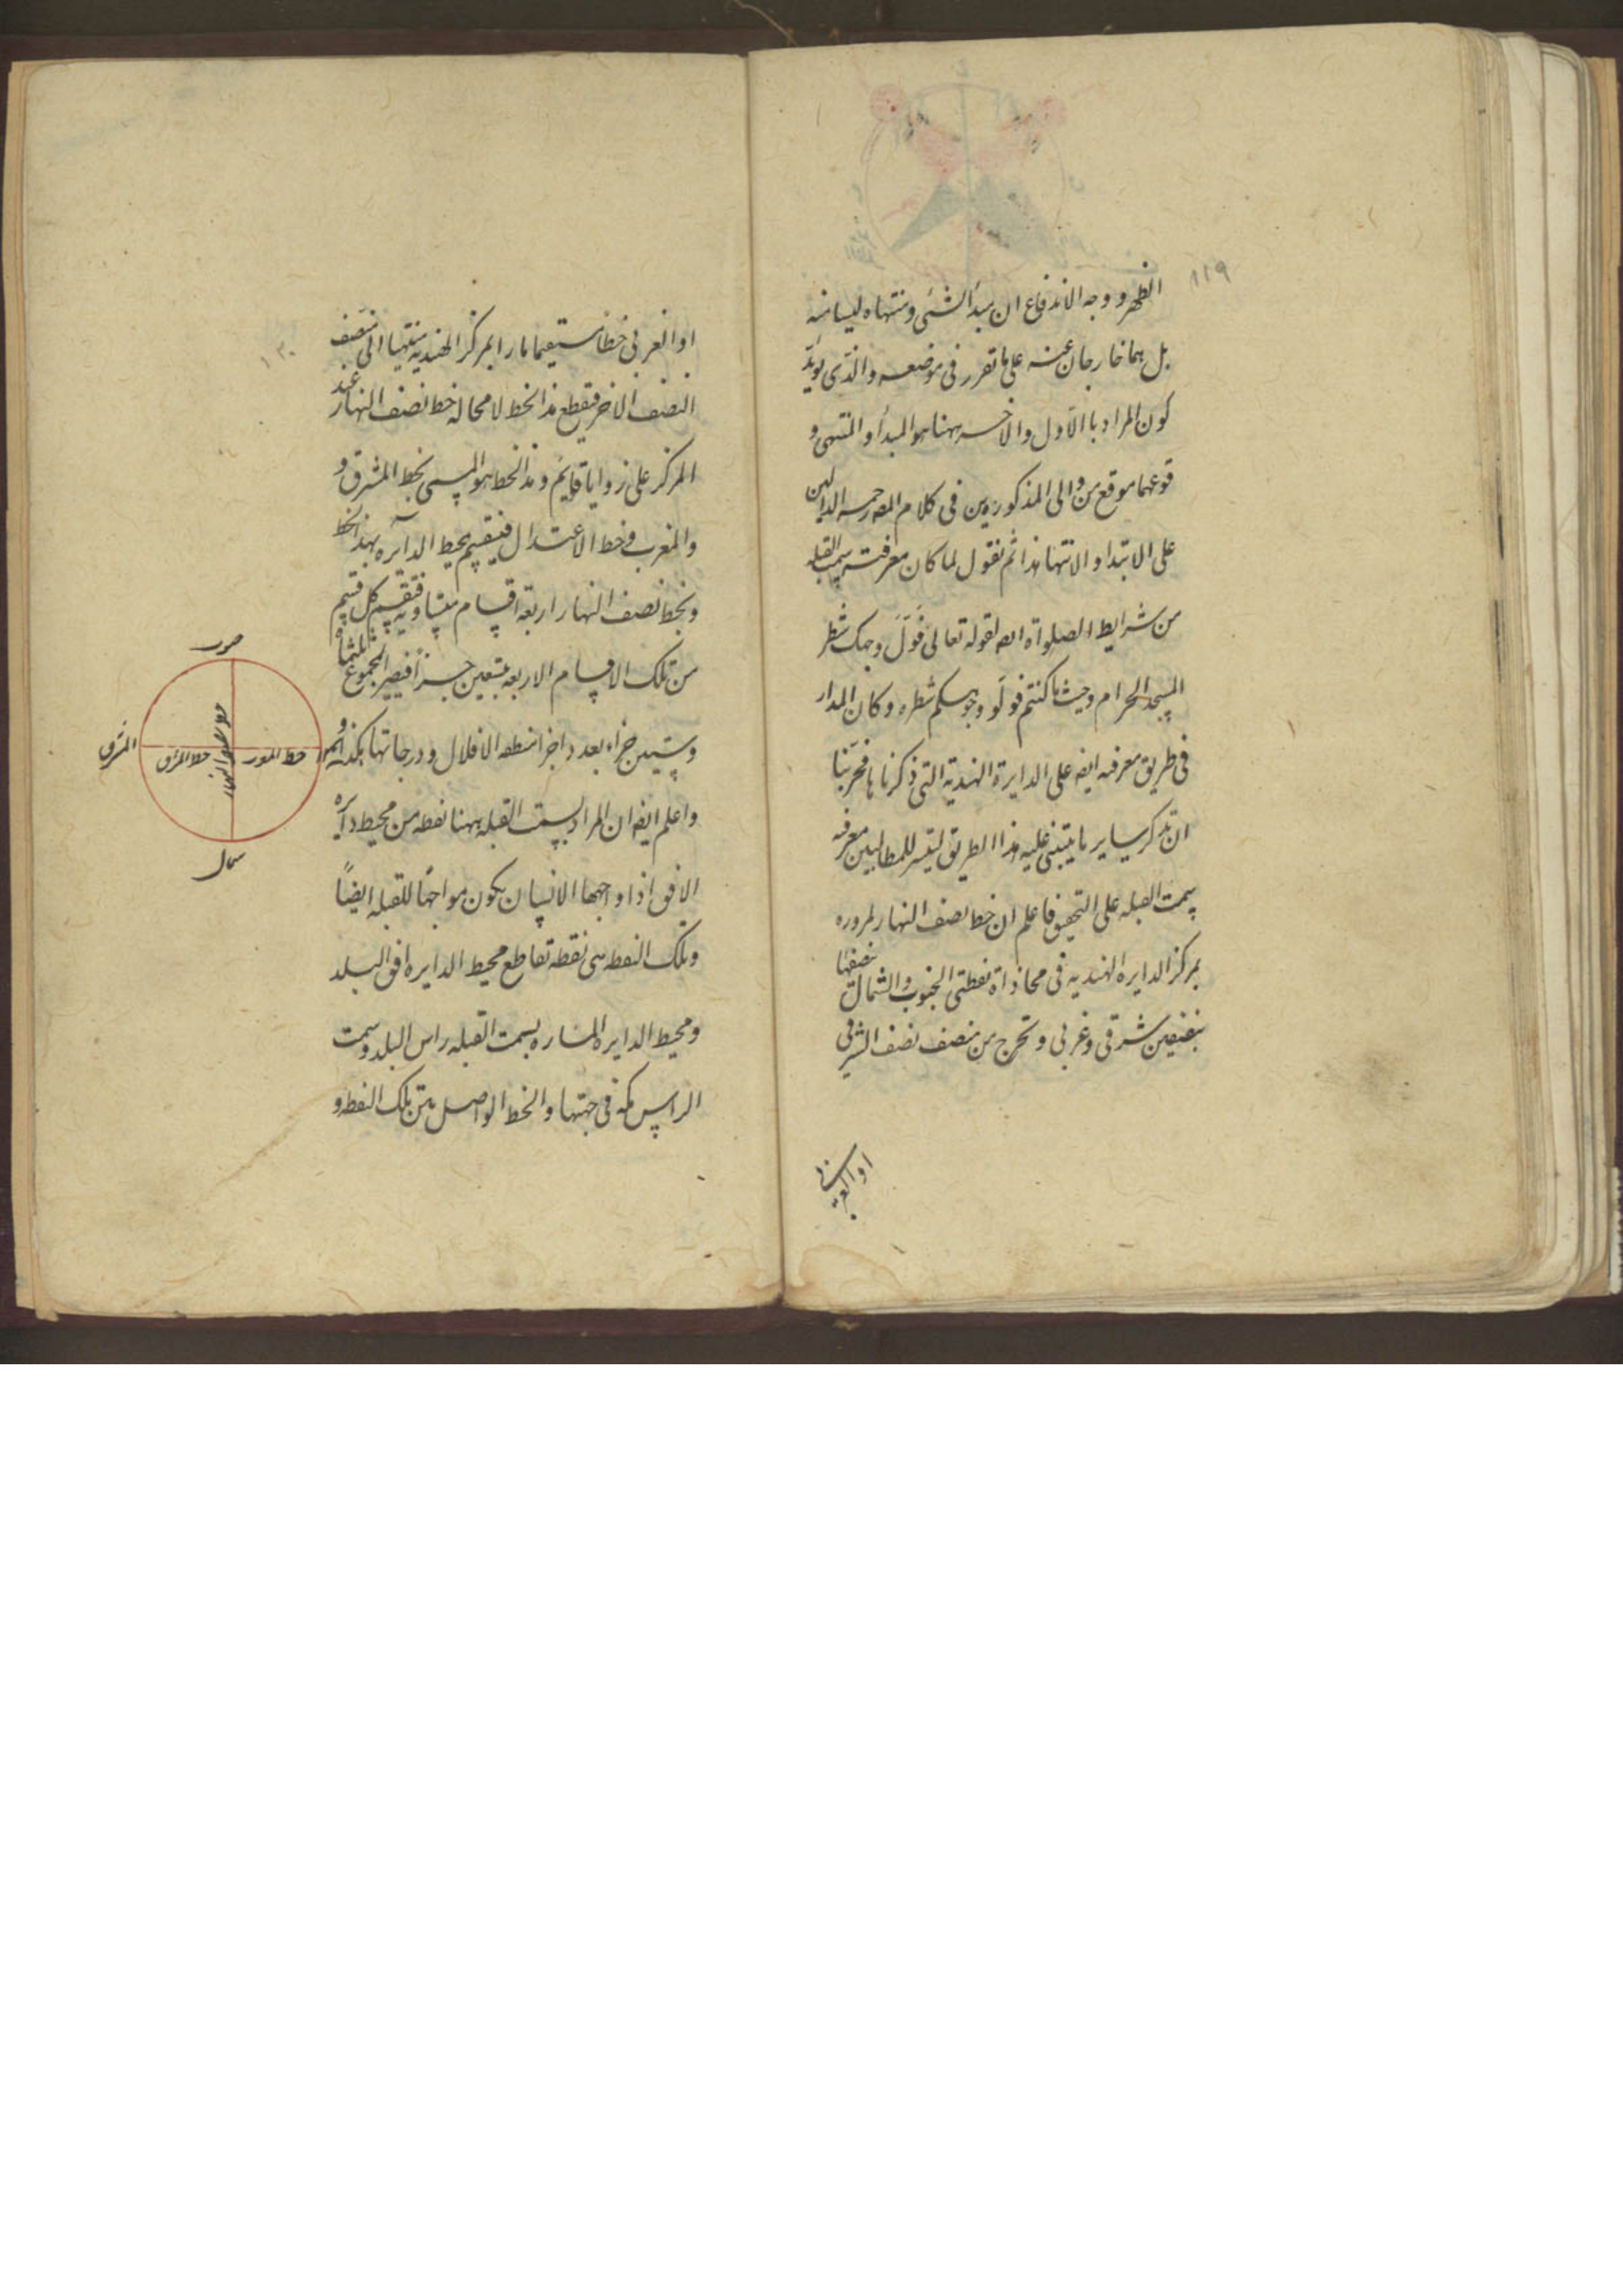 ١١٩
الظهر ووجه الاندفاع ان مبدأ الشئ ومنتهاه ليسا منه
بل هما خارجان عنه على ما تقرر فى موضعه والذى يؤيد
كون المراد بالاول والاخر ههنا هو المبدأ والمنتهى و
قوعهما موقع من والى المذكورين فى كلام المص رحمه الدالين
على الابتدا والانتها هذا ثم نقول لما كان معرفت سمت القبله
من شرايط الصلواة ايضه لقوله تعالى فول وجهك شطر
المسجد الحرام وحيث ما كنتم فولو وجوهكم شطره وكان المدار
فى طريق معرفه ايضه على الدايرة الهندية التى ذكرناها
ان نذكر ساير ما يبتنى عليه هذا الطريق ليتيسر للمطالبين معرفه
سمت القبله على التحقيق فاعلم ان خط نصف النهار لمروره
بمركز الدايره الهنديه فى محاذاة نقطتى الجنوب والشمال نصفها
بنصفين شرقى وغربى ونخرج من منصف نصف الشرقى
او الغربى
١٢٠
او الغربى خطا مستقيما مارا بمركز الهنديه منتهيا الى منصف
النصف الاخر فيقطع هذا الخط لا محالة خط نصف النهار عند
المركز على زوايا قايم وهذا الخط هو المسمى بخط المشرق و
والمغرب وخط الاعتدال فينقسم محيط الدآيره بهذا الخط
وبخط نصف النهار اربعة اقسام متساوية فينقسم كل قسم
من تلك الاقسام الاربعه بتسعين جزأ فيصير المجموع ثلثمأة
وستين جزاء بعدد اجزا منطقه الافلاك ودرجاتها هكذا
واعلم ايضه ان المراد بسمت القبله ههنا نقطه من محيط دآيره
الافق اذا واجهها الانسان يكون مواجها للقبله ايضًا
وتلك النقطه هى نقطه تقاطع محيط الدايره افق البلد
ومحيط الدايره الماره بسمت القبله راس البلد وسمت
الراس مكه فى جهتها والخط الواصل بين تلك النقطه و
جنوب
المشرق
خط المشرق
خط نصف النهار
خط المغرب
شمال